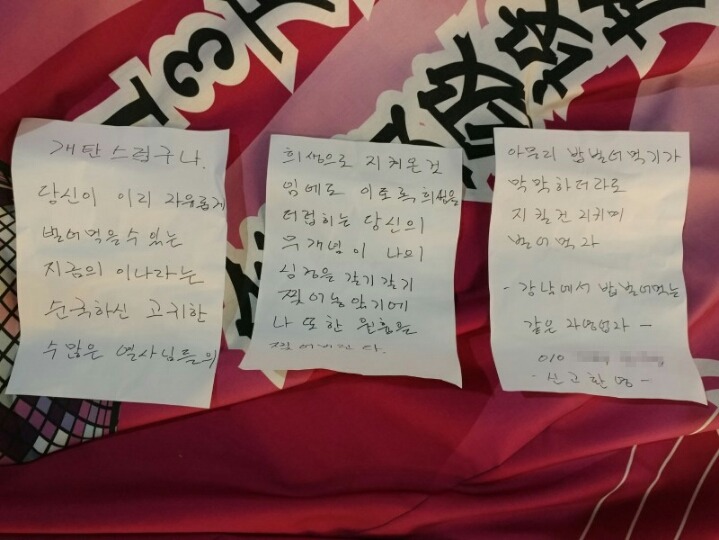 개탄스럽구나.
당신이 이리 자유롭게
벌어먹을수 있는
지금의 이나라는
순국하신 고귀한
수많은 열사님들의
희생으로 지켜온것
임에도 이토록 희생을
더럽히는 당신의
무개념이 나의
심장을 갈기갈기
찢어놓았기에
나 또한 원함을
찢어버린다.
아무리 밥벌어먹기가
막막하더라도
지킬건 지키며
벌어먹자
- 강남에서 밥벌어먹는
같은 자영업자 -
010
- 신고환영 -